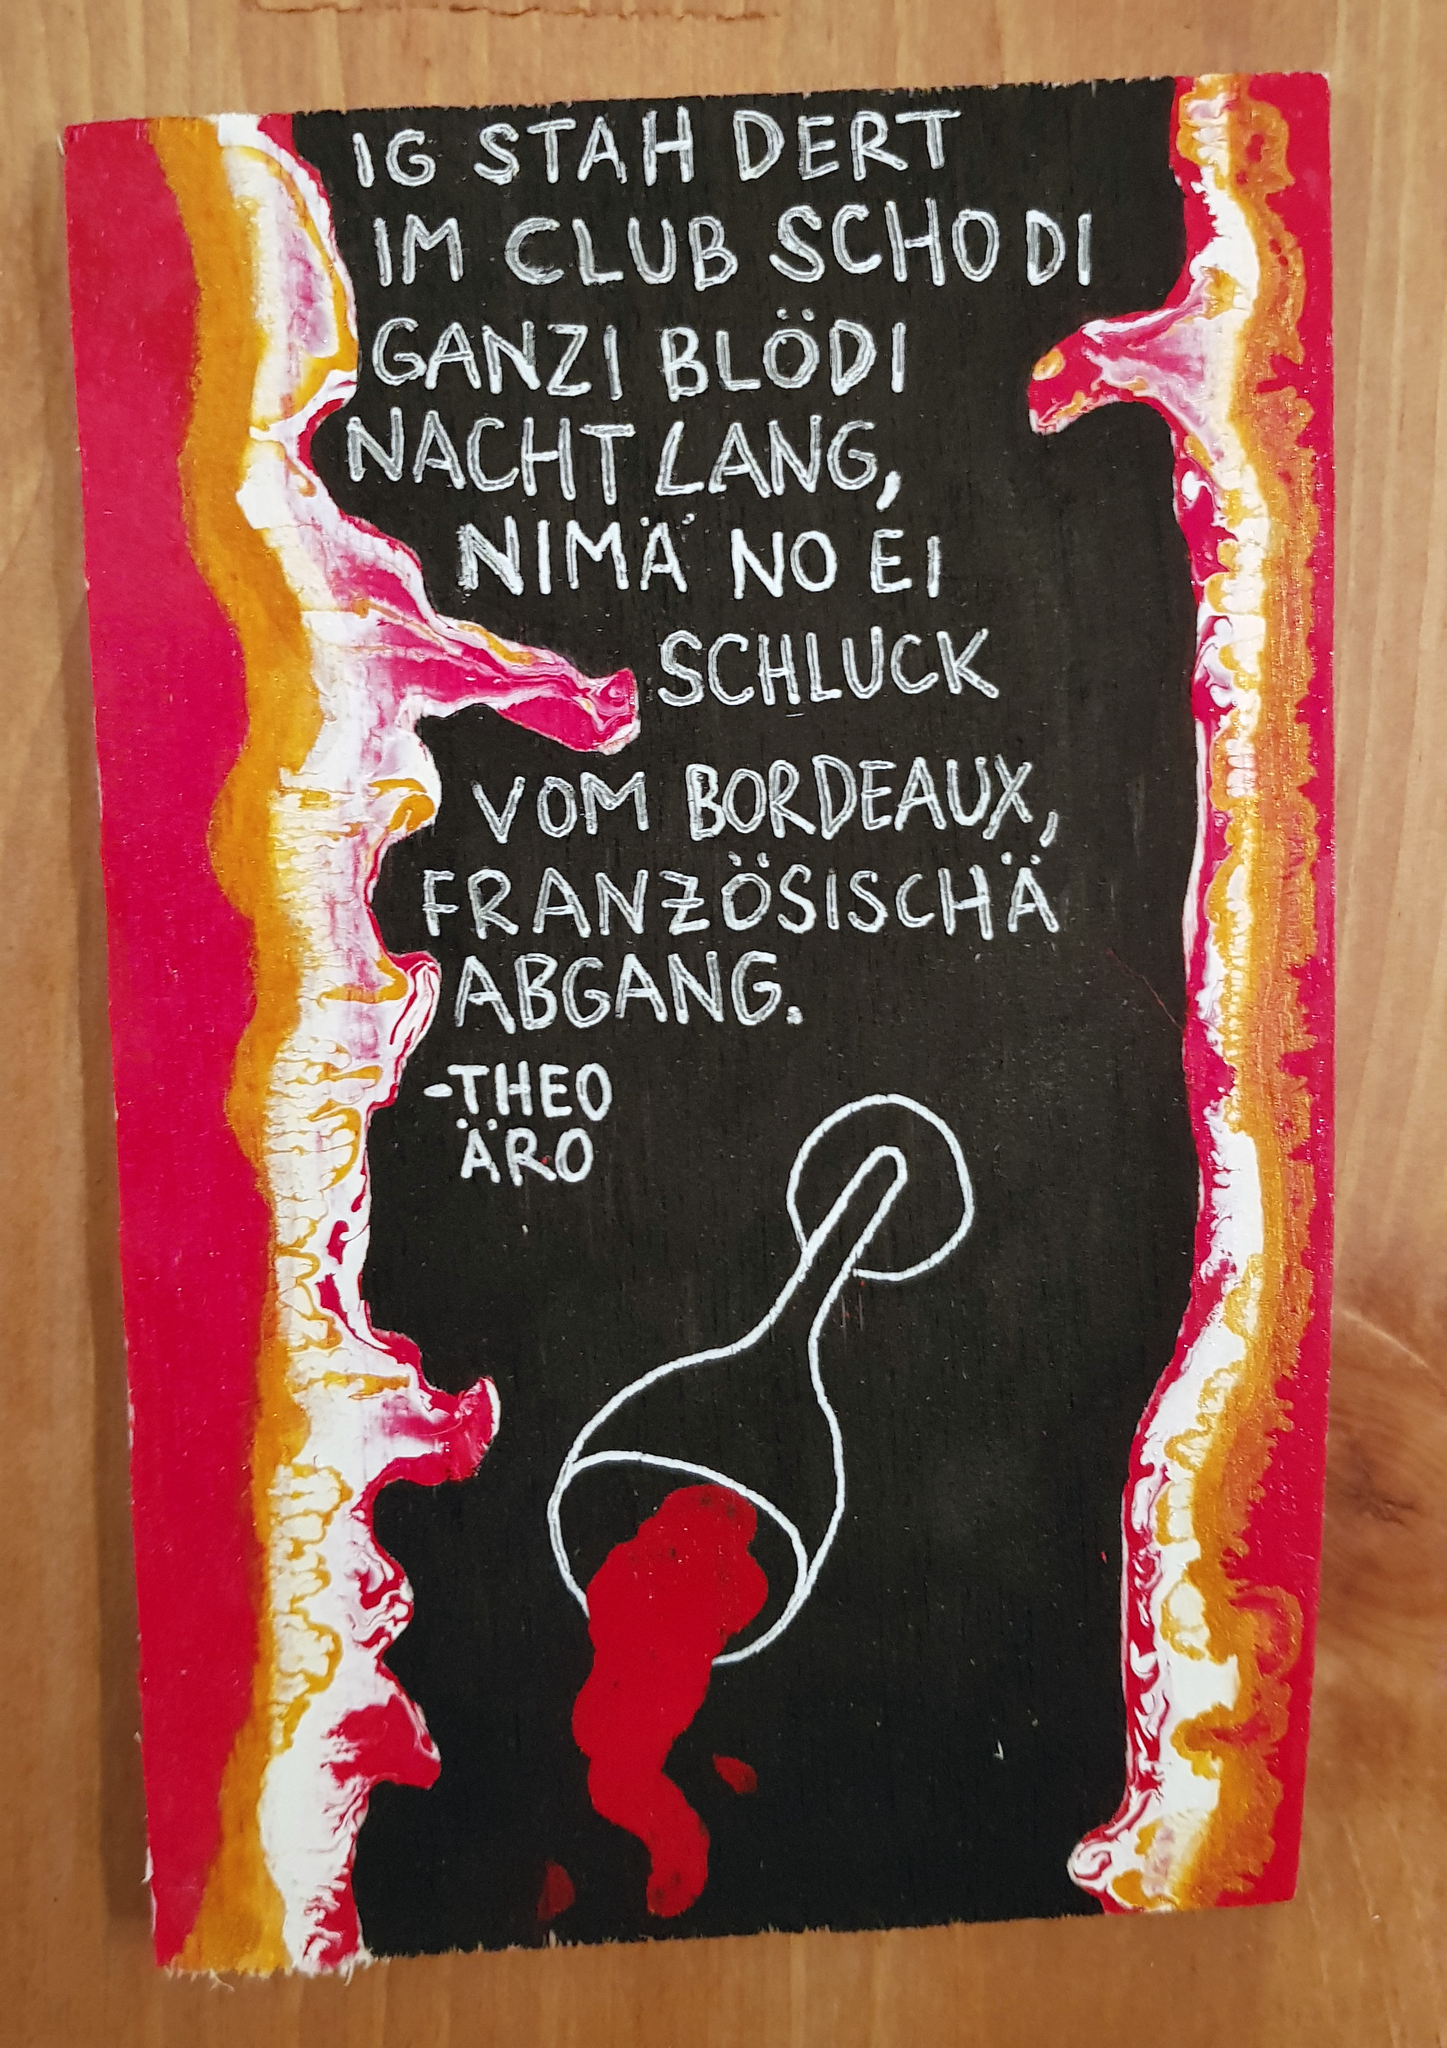 IG STAH DERT
IM CLUB SCHO DI
GANZI BLÖDI
NACHT LANG,
NIMÄ NO EI
SCHLUCK
VOM BORDEAUX,
FRANZÖSISCHÄ
ABGANG.
-THEO
ÄRO